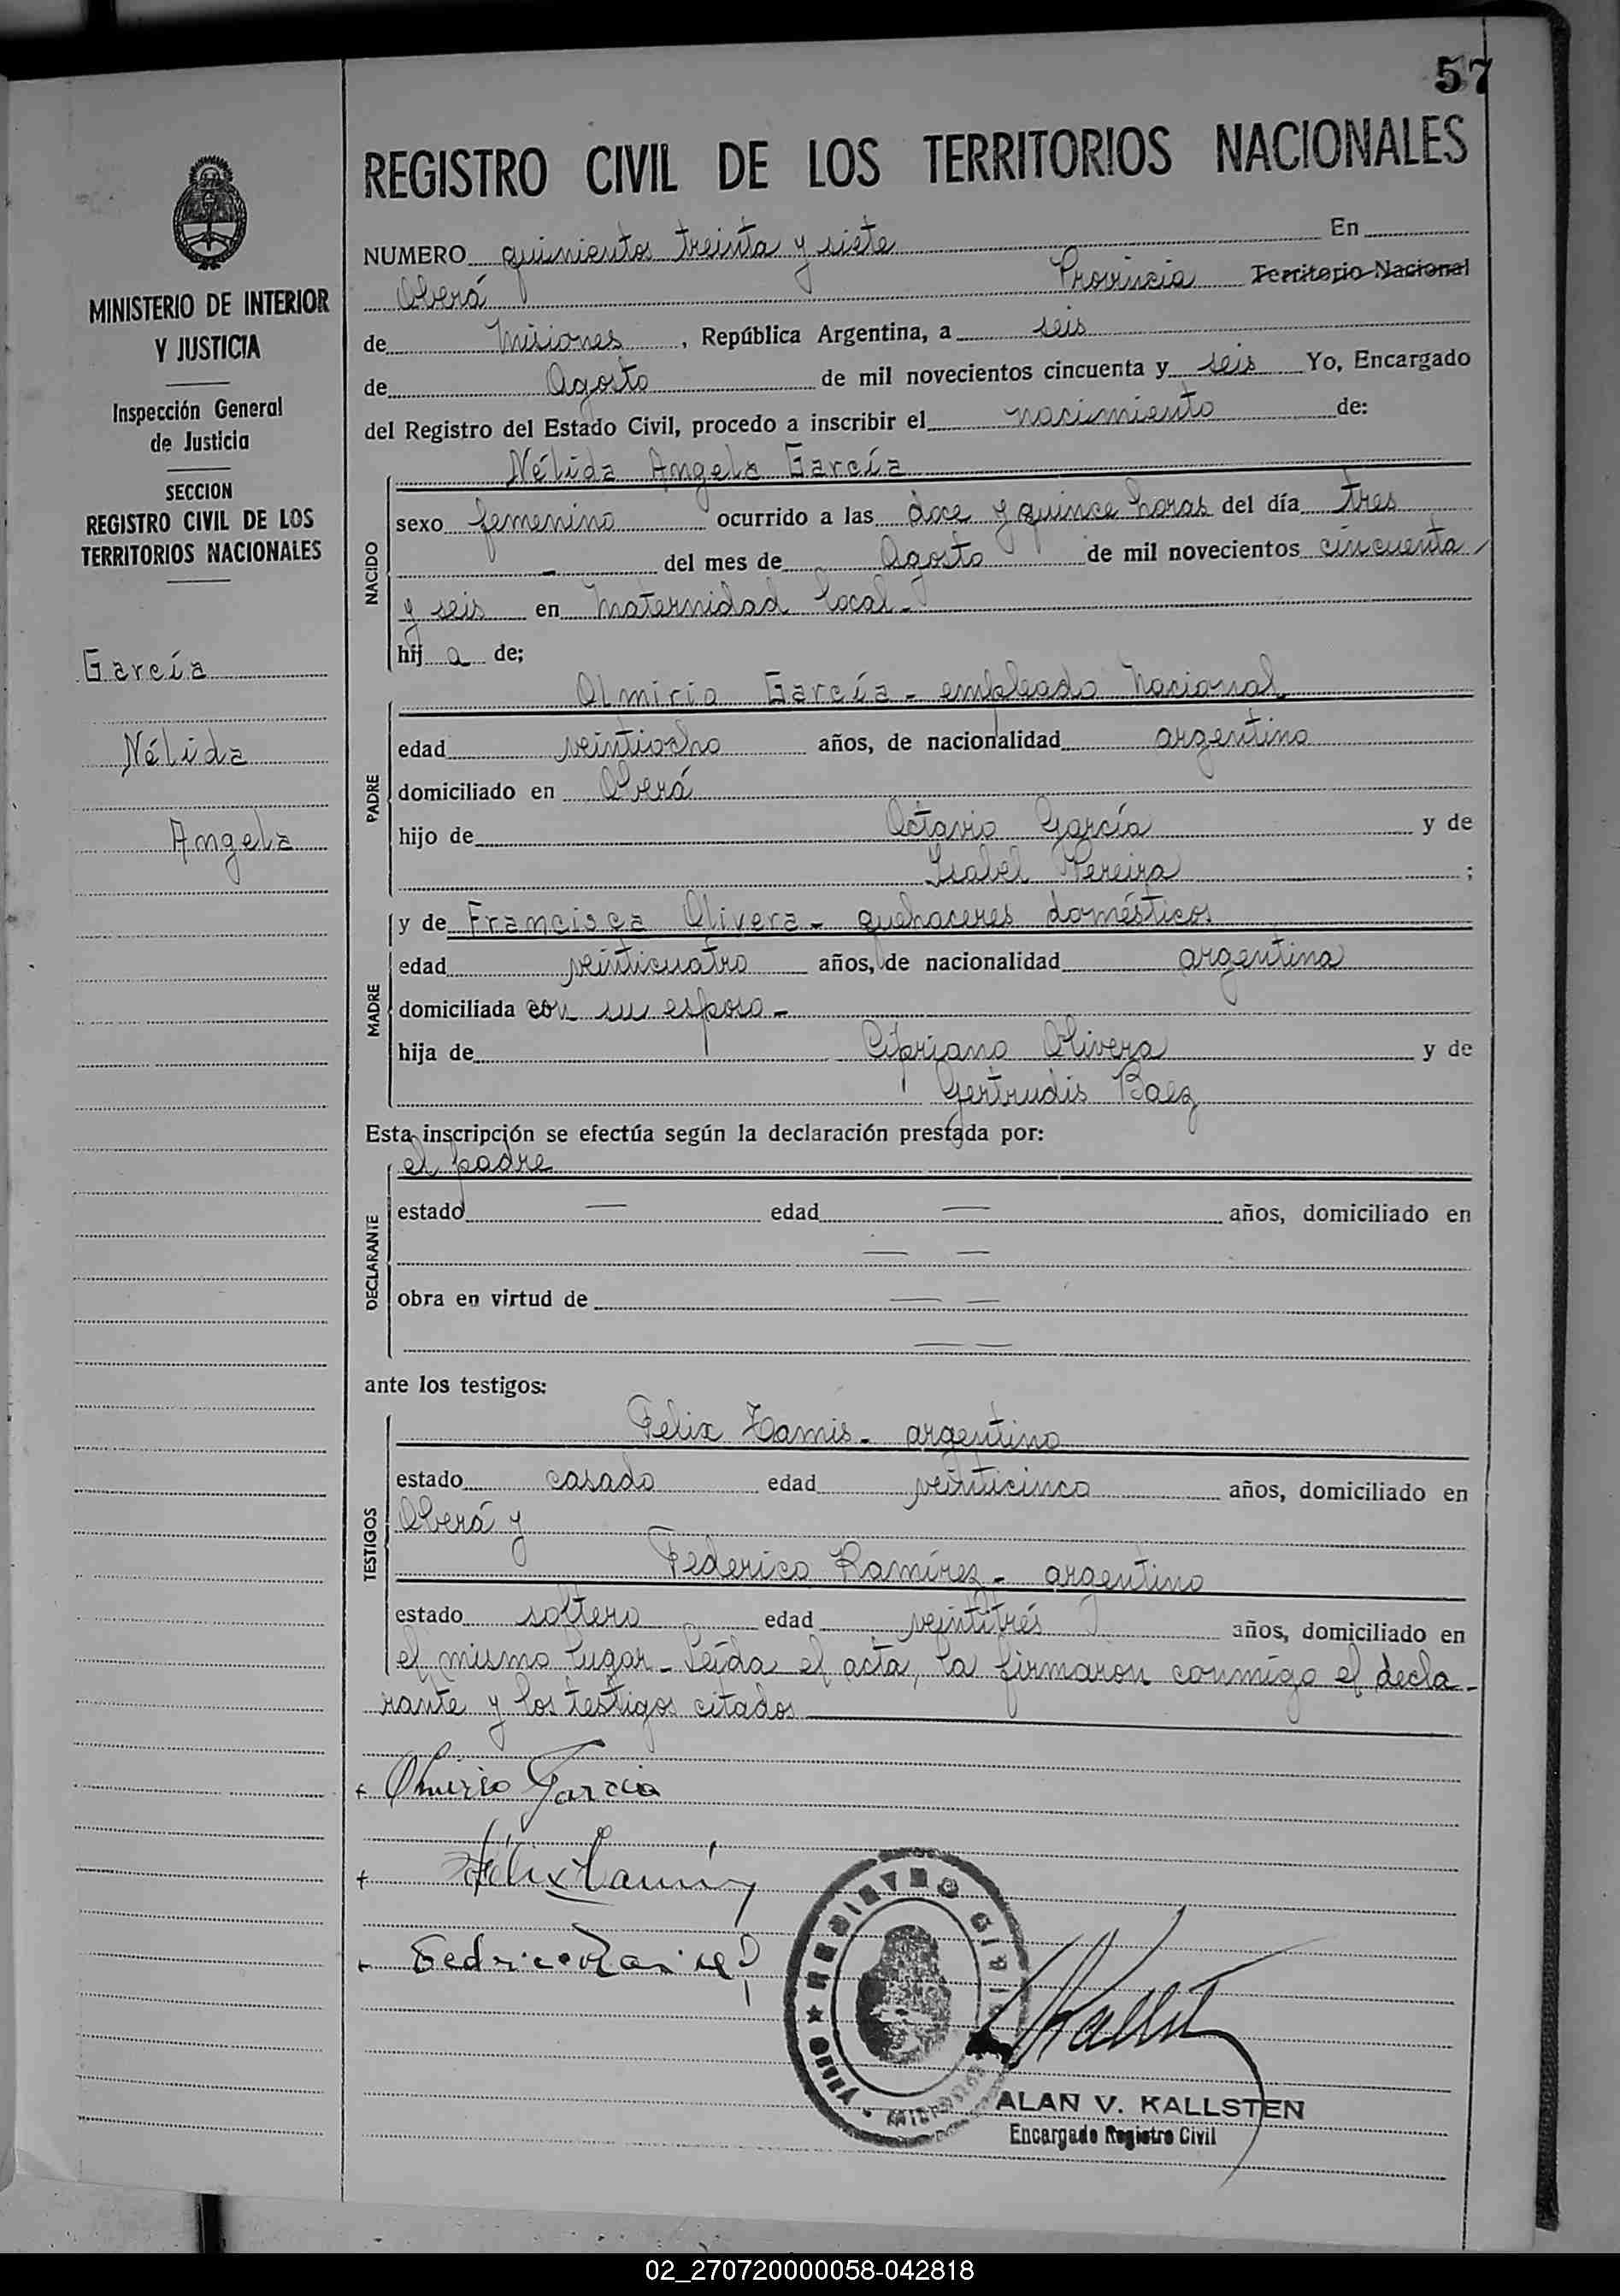 57
REGISTRO CIVIL DE LOS TERRITORIOS NACIONALES
MINISTERIO DE INTERIOR
Y JUSTICIA
Inspección General
de Justicia
SECCION
REGISTRO CIVIL DE LOS
TERRITORIOS NACIONALES
García
Nélida
Angela
NUMERO quinientos treinta y siete En
Oberá Provincia Territorio Nacional
de Misiones, República Argentina, a seis
de Agosto de mil novecientos cincuenta y seis Yo, Encargado
del Registro del Estado Civil, procedo a inscribir el nacimiento de:
NACIDO
Nélida Angela García
sexo femenino ocurrido a las doce y quince horas del día tres
- del mes de Agosto de mil novecientos cincuenta
y seis en Maternidad local.-
hij a de;
PADRE
Olmirio García - empleado Nacional
edad veintiocho años, de nacionalidad argentino
domiciliado en Oberá
hijo de Octavio García y de
Isabel Pereira ;
MADRE
y de Francisca Olivera - quehaceres domésticos
edad veinticuatro años, de nacionalidad argentina
domiciliada con su esposo -
hija de Cipriano Olivera y de
Gertrudis Baez
Esta inscripción se efectúa según la declaración prestada por:
DECLARANTE
el padre
estado — edad — años, domiciliado en
— —
obra en virtud de — —
— —
ante los testigos:
TESTIGOS
Felix - argentino
estado casado edad veinticinco años, domiciliado en
Oberá y
Federico Ramírez - argentino
estado soltero edad veintitrés años, domiciliado en
el mismo lugar - Leída el acta, la firmaron conmigo el decla-
rante y los testigos citados
Olmirio Garcia
Félix
REGISTRO CIVIL
OBERA
MISIONES
ALAN V. KALLSTEN
Encargado Registro Civil
02_270720000058-042818